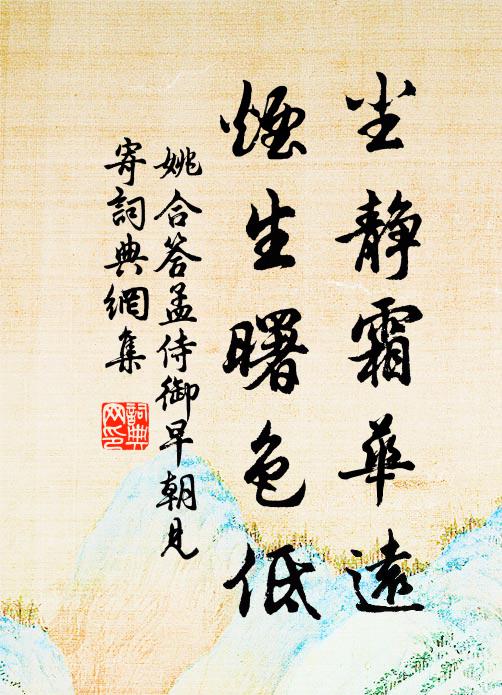 尘静霜华远
煙生曙色低
姚合答孟侍御早朝見
寄詞典網集
詞典
网印